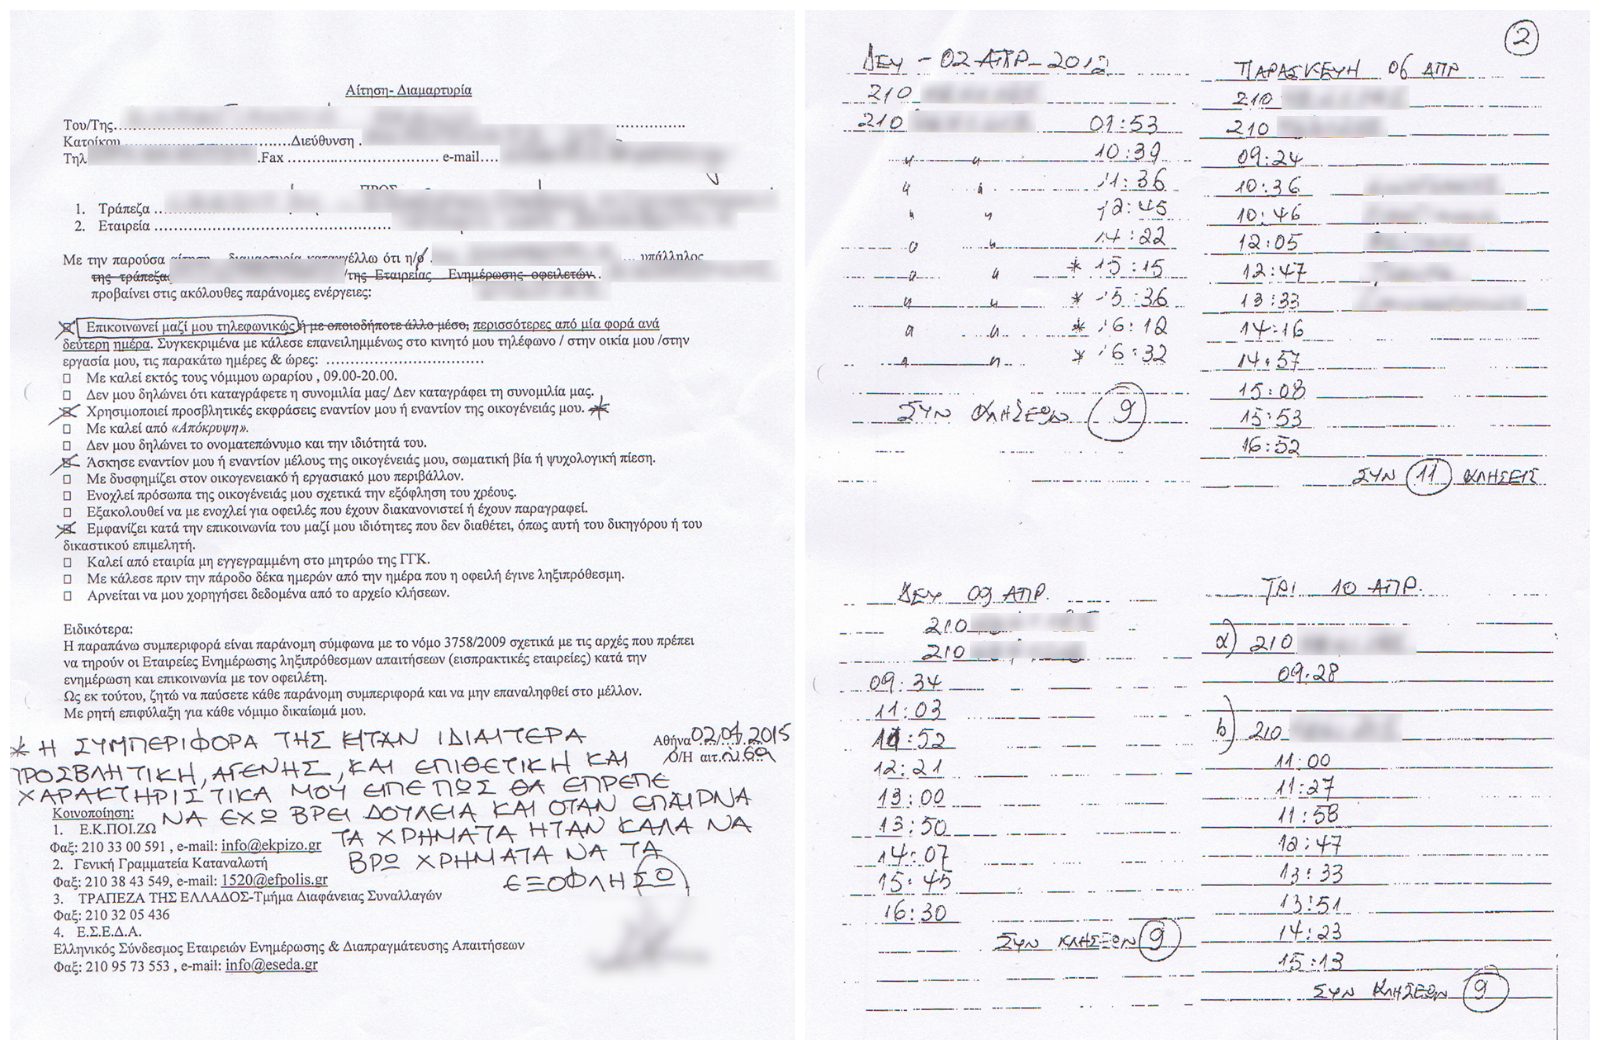 Αίτηση- Διαμαρτυρία
Του/Της
Κατοίκου Διεύθυνση
Τηλ Fax e-mail
ΠΡΟΣ
1. Τράπεζα
2. Εταιρεία
Με την παρούσα αίτηση διαμαρτυρία καταγγέλλω ότι η/ο υπάλληλος
της τράπεζας /της Εταιρείας Ενημέρωσης οφειλετών.
προβαίνει στις ακόλουθες παράνομες ενέργειες:
Επικοινωνεί μαζί μου τηλεφωνικώς ή με οποιοδήποτε άλλο μέσο, περισσότερες από μία φορά ανά
δεύτερη ημέρα. Συγκεκριμένα με κάλεσε επανειλημμένως στο κινητό μου τηλέφωνο / στην οικία μου /στην
εργασία μου, τις παρακάτω ημέρες & ώρες:
Με καλεί εκτός τους νόμιμου ωραρίου , 09.00-20.00.
Δεν μου δηλώνει ότι καταγράφετε η συνομιλία μας/ Δεν καταγράφει τη συνομιλία μας.
Χρησιμοποιεί προσβλητικές εκφράσεις εναντίον μου ή εναντίον της οικογένειάς μου. *
Με καλεί από «Απόκρυψη».
Δεν μου δηλώνει το ονοματεπώνυμο και την ιδιότητά του.
Άσκησε εναντίον μου ή εναντίον μέλους της οικογένειάς μου, σωματική βία ή ψυχολογική πίεση.
Με δυσφημίζει στον οικογενειακό ή εργασιακό μου περιβάλλον.
Ενοχλεί πρόσωπα της οικογένειάς μου σχετικά την εξόφληση του χρέους.
Εξακολουθεί να με ενοχλεί για οφειλές που έχουν διακανονιστεί ή έχουν παραγραφεί.
Εμφανίζει κατά την επικοινωνία του μαζί μου ιδιότητες που δεν διαθέτει, όπως αυτή του δικηγόρου ή του
δικαστικού επιμελητή.
Καλεί από εταιρία μη εγγεγραμμένη στο μητρώο της ΓΓΚ.
Με κάλεσε πριν την πάροδο δέκα ημερών από την ημέρα που η οφειλή έγινε ληξιπρόθεσμη.
Αρνείται να μου χορηγήσει δεδομένα από το αρχείο κλήσεων.
Ειδικότερα:
Η παραπάνω συμπεριφορά είναι παράνομη σύμφωνα με το νόμο 3758/2009 σχετικά με τις αρχές που πρέπει
να τηρούν οι Εταιρείες Ενημέρωσης ληξιπρόθεσμων απαιτήσεων (εισπρακτικές εταιρείες) κατά την
ενημέρωση και επικοινωνία με τον οφειλέτη.
Ως εκ τούτου, ζητώ να παύσετε κάθε παράνομη συμπεριφορά και να μην επαναληφθεί στο μέλλον.
Με ρητή επιφύλαξη για κάθε νόμιμο δικαίωμά μου.
Αθήνα 02.04.2015
Ο/Η αιτ
* Η ΣΥΜΠΕΡΙΦΟΡΑ ΤΗΣ ΗΤΑΝ ΙΔΙΑΙΤΕΡΑ
ΠΡΟΣΒΛΗΤΙΚΗ, ΑΓΕΝΗΣ, ΚΑΙ ΕΠΙΘΕΤΙΚΗ ΚΑΙ
ΧΑΡΑΚΤΗΡΙΣΤΙΚΑ ΜΟΥ ΕΙΠΕ ΠΩΣ ΘΑ ΕΠΡΕΠΕ
ΝΑ ΕΧΩ ΒΡΕΙ ΔΟΥΛΕΙΑ ΚΑΙ ΟΤΑΝ ΕΠΑΙΡΝΑ
ΤΑ ΧΡΗΜΑΤΑ ΗΤΑΝ ΚΑΛΑ ΝΑ
ΒΡΩ ΧΡΗΜΑΤΑ ΝΑ ΤΑ
ΕΞΟΦΛΗΣΩ
Κοινοποίηση:
1. Ε.Κ.ΠΟΙ.ΖΩ
Φαξ: 210 33 00 591 , e-mail: info@ekpizo.gr
2. Γενική Γραμματεία Καταναλωτή
Φαξ: 210 38 43 549, e-mail: 1520@efpolis.gr
3. ΤΡΑΠΕΖΑ ΤΗΣ ΕΛΛΑΔΟΣ-Τμήμα Διαφάνειας Συναλλαγών
Φαξ: 210 32 05 436
4. Ε.Σ.Ε.Δ.Α.
Ελληνικός Σύνδεσμος Εταιρειών Ενημέρωσης & Διαπραγμάτευσης Απαιτήσεων
Φαξ: 210 95 73 553 , e-mail: info@eseda.gr
2
ΔΕΥ - 02 ΑΠΡ - 2012
210
210 09:53
" " 10:39
" " 11:36
" " 12:45
" " 14:22
" " * 15:15
" " * 15:36
" " * 16:12
" " * 16:32
ΣΥΝ ΚΛΗΣΕΩΝ 9
ΠΑΡΑΣΚΕΥΗ 06 ΑΠΡ
210
210
09:24
10:36
10:46
12:05
12:47
13:33
14:16
14:57
15:08
15:53
16:52
ΣΥΝ 11 ΚΛΗΣΕΙΣ
ΔΕΥ 09 ΑΠΡ.
210
210
09:34
11:03
11:52
12:21
13:00
13:50
14:07
15:45
16:30
ΣΥΝ ΚΛΗΣΕΩΝ 9
ΤΡΙ 10 ΑΠΡ.
a) 210
09:28
b) 210
11:00
11:27
11:58
12:47
13:33
13:51
14:23
15:13
ΣΥΝ ΚΛΗΣΕΩΝ 9